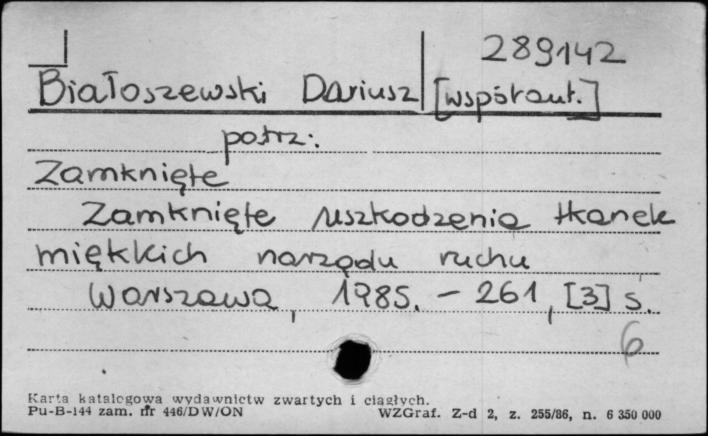 289142
Białoszewski Dariusz [współaut.]
patrz:
Zamknięte
Zamknięte uszkodzenia tkanek
miękkich narządu ruchu
Warszawa, 1985. - 261, [3] s.
6
Karta katalogowa wydawnictw zwartych i ciągłych.
Pu-B-144 zam. nr 446/DW/ON WZGraf. Z-d 2, z. 255/86, n. 6 350 000